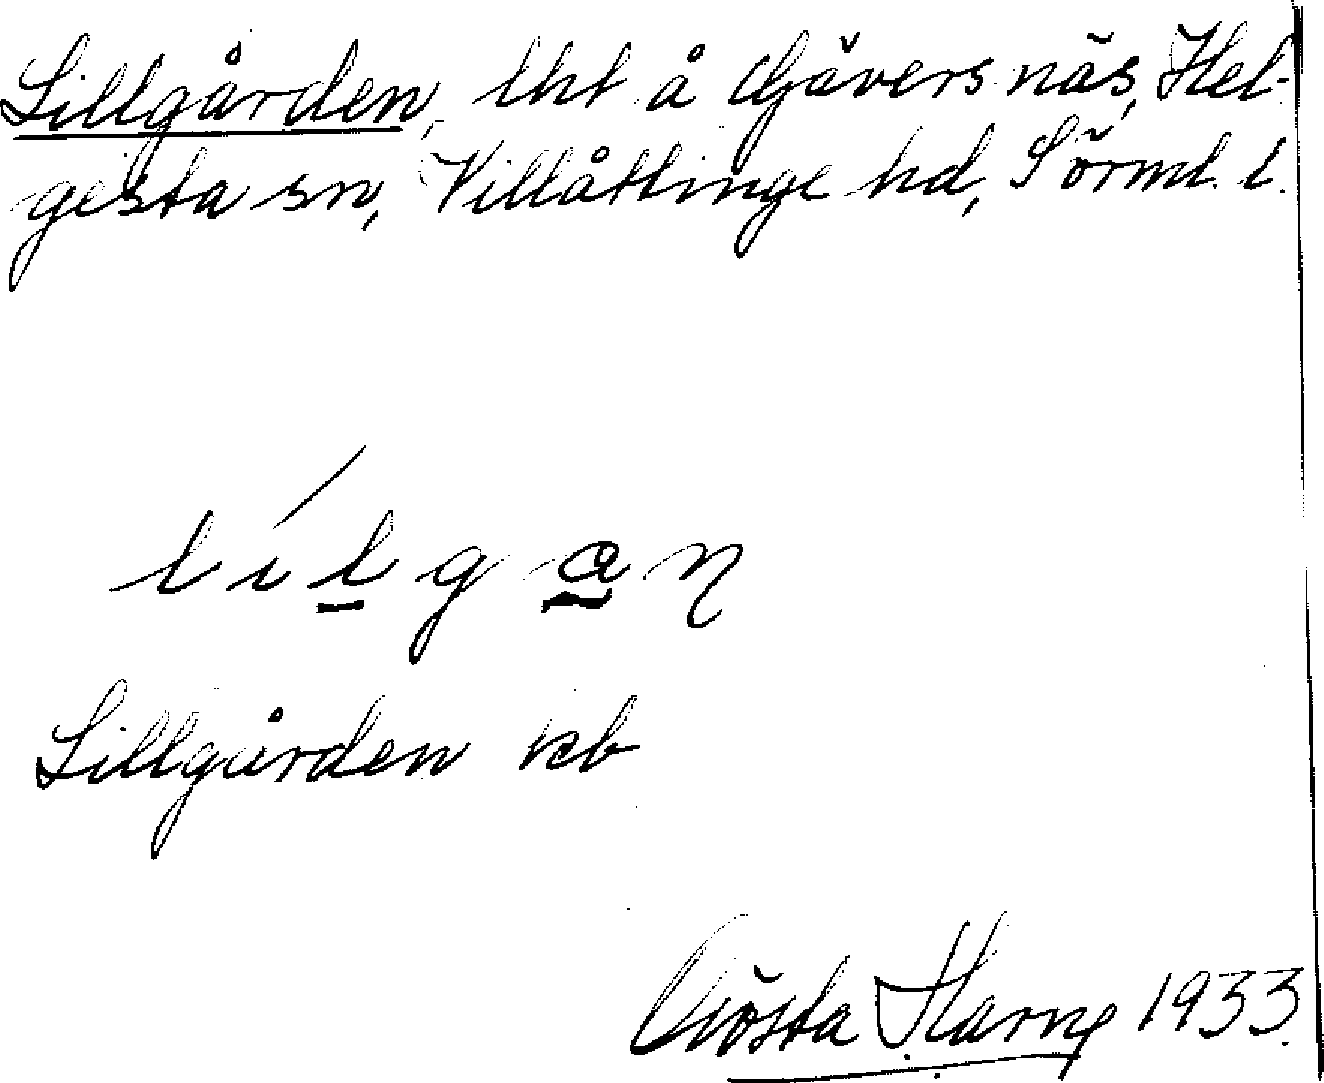 Lillgården, lht å Gävers näs, Hel-
gesta sn, Villåttinge hd, Sörml. l.
lílgan
Lillgården kb
Gösta Harne 1933.